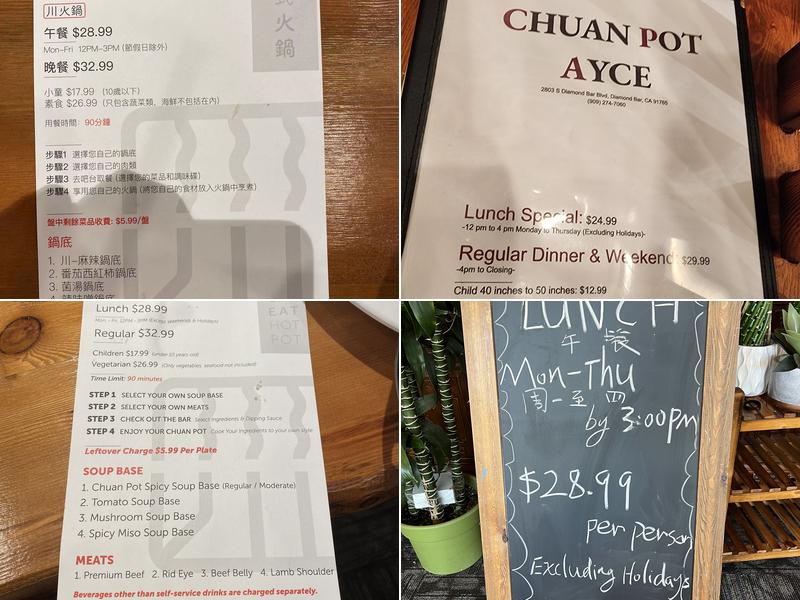 川火鍋
式火鍋
午餐 $28.99
Mon-Fri 12PM-3PM (節假日除外)
晚餐 $32.99
小童 $17.99 (10歲以下)
素食 $26.99 (只包含蔬菜類，海鮮不包括在內)
用餐時間： 90分鐘
步驟1 選擇您自己的鍋底
步驟2 選擇您自己的肉類
步驟3 去吧台取餐 (選擇您的菜品和調味碟)
步驟4 享用您自己的火鍋 (將您自己的食材放入火鍋中烹煮)
盤中剩餘菜品收費: $5.99/盤
鍋底
1. 川-麻辣鍋底
2. 番茄西紅柿鍋底
3. 菌湯鍋底
4. 辣味噌鍋底
CHUAN POT
AYCE
2803 S Diamond Bar Blvd, Diamond Bar, CA 91765
(909) 274-7060
Lunch Special: $24.99
-12 pm to 4 pm Monday to Thursday (Excluding Holidays)-
Regular Dinner & Weekend: $29.99
-4pm to Closing-
Child 40 inches to 50 inches: $12.99
Lunch $28.99
Mon - Fri, 12PM - 3PM (Except Weekends & Holidays)
Regular $32.99
EAT
HOT
POT
Children $17.99 (under 10 years old)
Vegetarian $26.99 (Only vegetables, seafood not included)
Time Limit: 90 minutes
STEP 1 SELECT YOUR OWN SOUP BASE
STEP 2 SELECT YOUR OWN MEATS
STEP 3 CHECK OUT THE BAR Select Ingredients & Dipping Sauce
STEP 4 ENJOY YOUR CHUAN POT Cook Your Ingredients to your own style
Leftover Charge $5.99 Per Plate
SOUP BASE
1. Chuan Pot Spicy Soup Base (Regular / Moderate)
2. Tomato Soup Base
3. Mushroom Soup Base
4. Spicy Miso Soup Base
MEATS
1. Premium Beef 2. Rid Eye 3. Beef Belly 4. Lamb Shoulder
Beverages other than self-service drinks are charged separately.
LUNCH
午餐
Mon-Thu
周一至四
by 3:00pm
$28.99
per person
Excluding Holidays